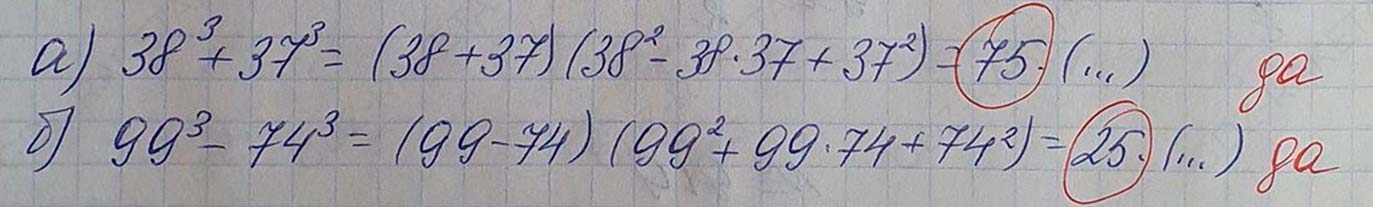 а) 38³ + 37³ = (38 + 37) (38² - 38·37 + 37²) = 75· (...) да
б) 99³ - 74³ = (99 - 74) (99² + 99·74 + 74²) = 25· (...) да